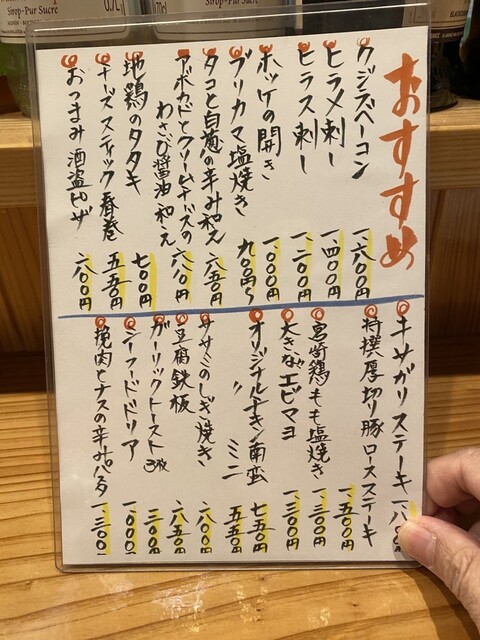 おすすめ
クジラベーコン 一、六〇〇円
ヒラメ刺し 一、四〇〇円
ヒラス刺し 一、二〇〇円
ホッケの開き 一、〇〇〇円
ブリカマ塩焼き 九〇〇円〜
タコと白葱の辛み和え 六五〇円
アボカドとクリームチーズの
わさび醤油和え 六八〇円
地鶏のタタキ 七〇〇円
チーズスティック春巻 五五〇円
おつまみ酒盗ピザ 八〇〇円
キサガリステーキ
特撰厚切り豚ロースステーキ 一、五〇〇円
宮崎鶏もも塩焼き 一、三〇〇円
大きなエビマヨ 一、三〇〇円
オリジナルチキン南蛮 七五〇円
〃 ミニ 五五〇円
ササミのしぎ焼き 八〇〇円
豆腐鉄板 八五〇円
ガーリックトースト 3枚 三〇〇円
シーフードドリア 一、〇〇〇円
挽肉とナスの辛みパスタ 一、三〇〇円
Sirop-Pur Sucre
Sirop-Pur Sucre